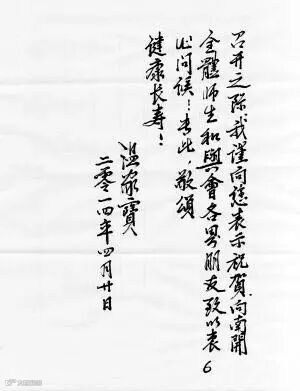 召开之际,我谨向您表示祝贺,向南開
全體师生和與會各界朋友致以衷
心问候!专此,敬頌
健康长寿!
温家寶
二零一四年四月廿日
6